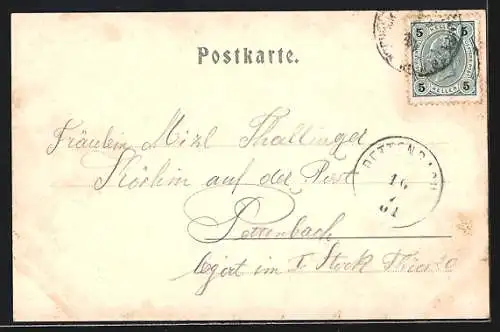 Postkarte.
5 HELLER 5
5 HELLER 5
Fräulein Mizl Thallinger
Köchin auf der Post
PETTENBACH
16
01
Pettenbach
im I Stock